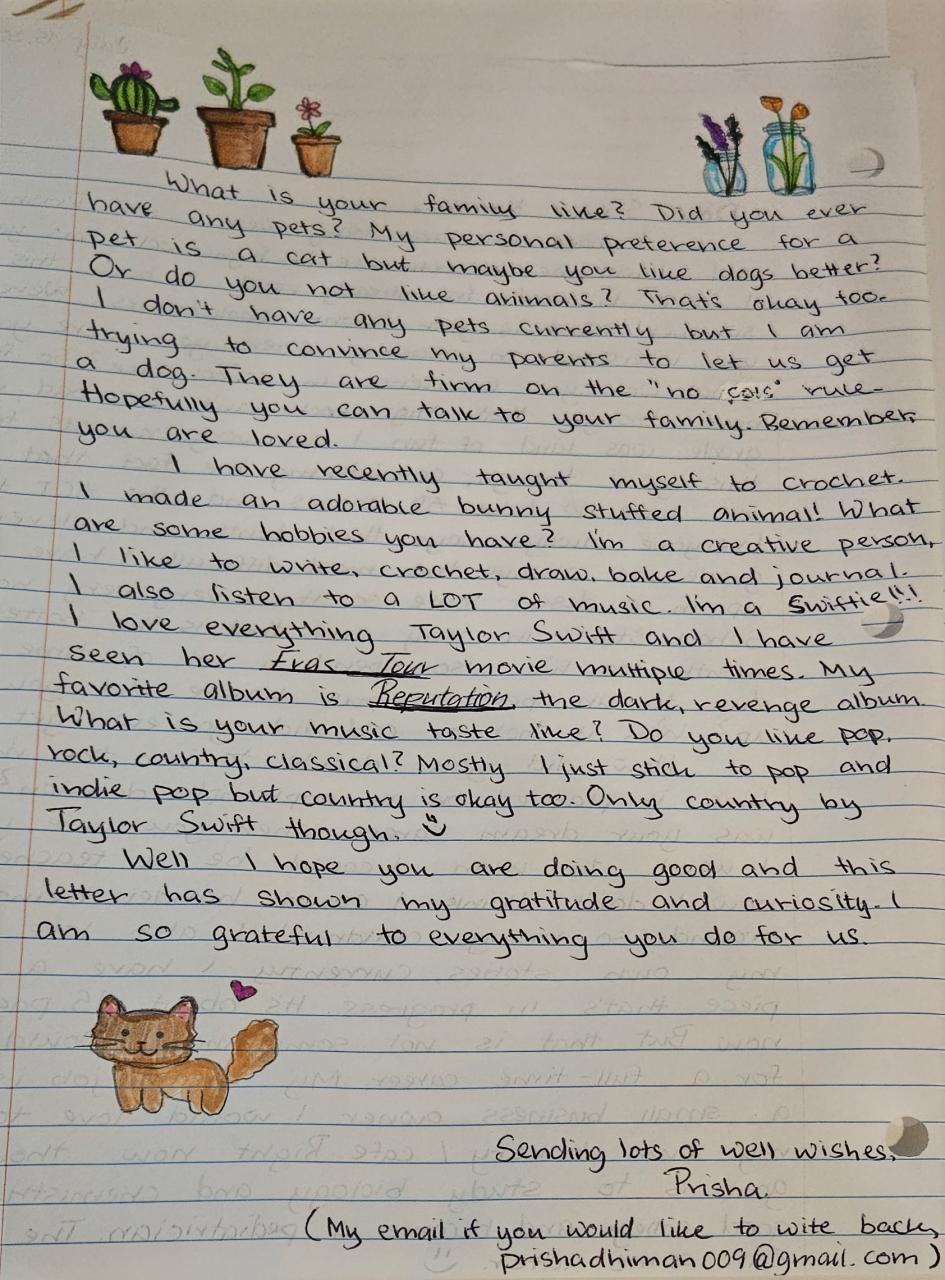 What is your family like? Did you ever
have any pets? My personal preference for a
pet is a cat but maybe you like dogs better?
Or do you not like animals? That's okay too.
I don't have any pets currently but I am
trying to convince my parents to let us get
a dog. They are firm on the "no cats" rule.
Hopefully you can talk to your family. Remember,
you are loved.
I have recently taught myself to crochet.
I made an adorable bunny stuffed animal! What
are some hobbies you have? I'm a creative person,
I like to write, crochet, draw, bake and journal.
I also listen to a LOT of music. I'm a Swiftie!!!
I love everything Taylor Swift and I have
seen her Eras Tour movie multiple times. My
favorite album is Reputation, the dark, revenge album.
What is your music taste like? Do you like pop,
rock, country, classical? Mostly I just stick to pop and
indie pop but country is okay too. Only country by
Taylor Swift though.
Well I hope you are doing good and this
letter has shown my gratitude and curiosity. I
am so grateful to everything you do for us.
Sending lots of well wishes,
Prisha.
(My email if you would like to wite back,
prishadhiman009@gmail.com)